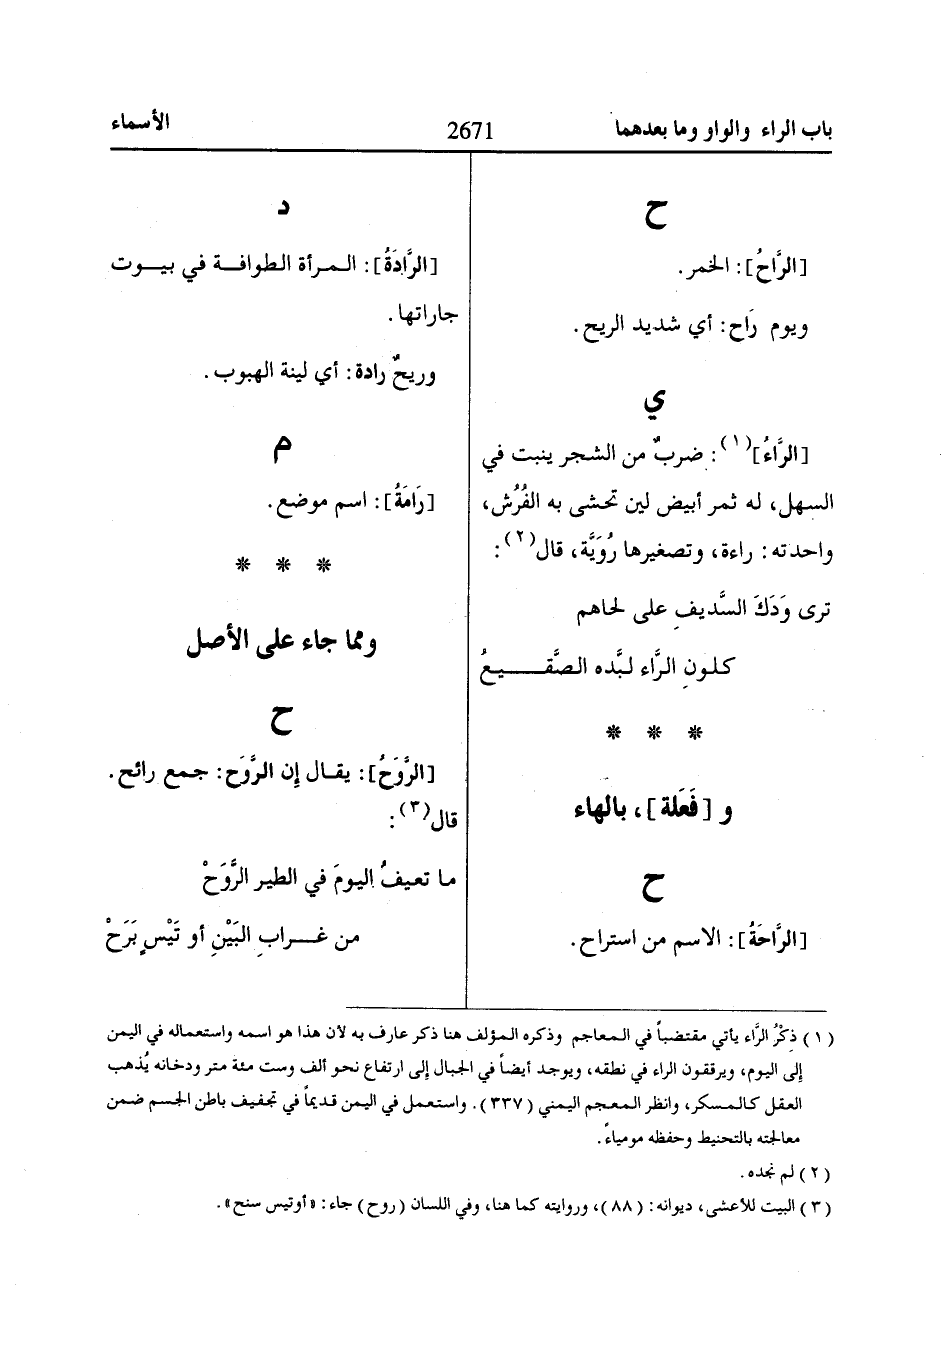 باب الراء والواو وما بعدهما
2671
الأسماء
ح
[الرَّاحُ]: الخمر.
ويوم رَاح: أي شديد الريح.
ي
[الرَّاءُ](١): ضربٌ من الشجر ينبت في
السهل، له ثمر أبيض لين تحشى به الفُرُش،
واحدته: راءة، وتصغيرها رُوَيَّة، قال(٢):
ترى وَدَكَ السَّديفِ على لحاهم
كلونِ الرَّاء لبَّده الصَّقـــيعُ
* * *
و [فَعَلة]، بالهاء
ح
[الرَّاحَةُ]: الاسم من استراح.
د
[الرَّادَةُ]: المرأة الطوافة في بيوت
جاراتها.
وريحٌ رادة: أي لينة الهبوب.
م
[رَامَةُ]: اسم موضع.
* * *
ومما جاء على الأصل
ح
[الرَّوَحُ]: يقال إن الرَّوَح: جمع رائح.
قال(٣):
ما تعيفُ اليومَ في الطير الرَّوَحْ
من غـراب البَيْنِ أو تَيْسٍ بَرَحْ
(١) ذِكْرُ الرَّاء يأتي مقتضباً في المعاجم وذكره المؤلف هنا ذكر عارف به لأن هذا هو اسمه واستعماله في اليمن
إلى اليوم، ويرققون الراء في نطقه، ويوجد أيضاً في الجبال إلى ارتفاع نحو ألف وست مئة متر ودخانه يُذهب
العقل كالمسكر، وانظر المعجم اليمني (٣٣٧). واستعمل في اليمن قديماً في تجفيف باطن الجسم ضمن
معالجته بالتحنيط وحفظه مومياءً.
(٢) لم نجده.
(٣) البيت للأعشى، ديوانه: (٨٨)، وروايته كما هنا، وفي اللسان (روح) جاء: «أوتيس سنح».